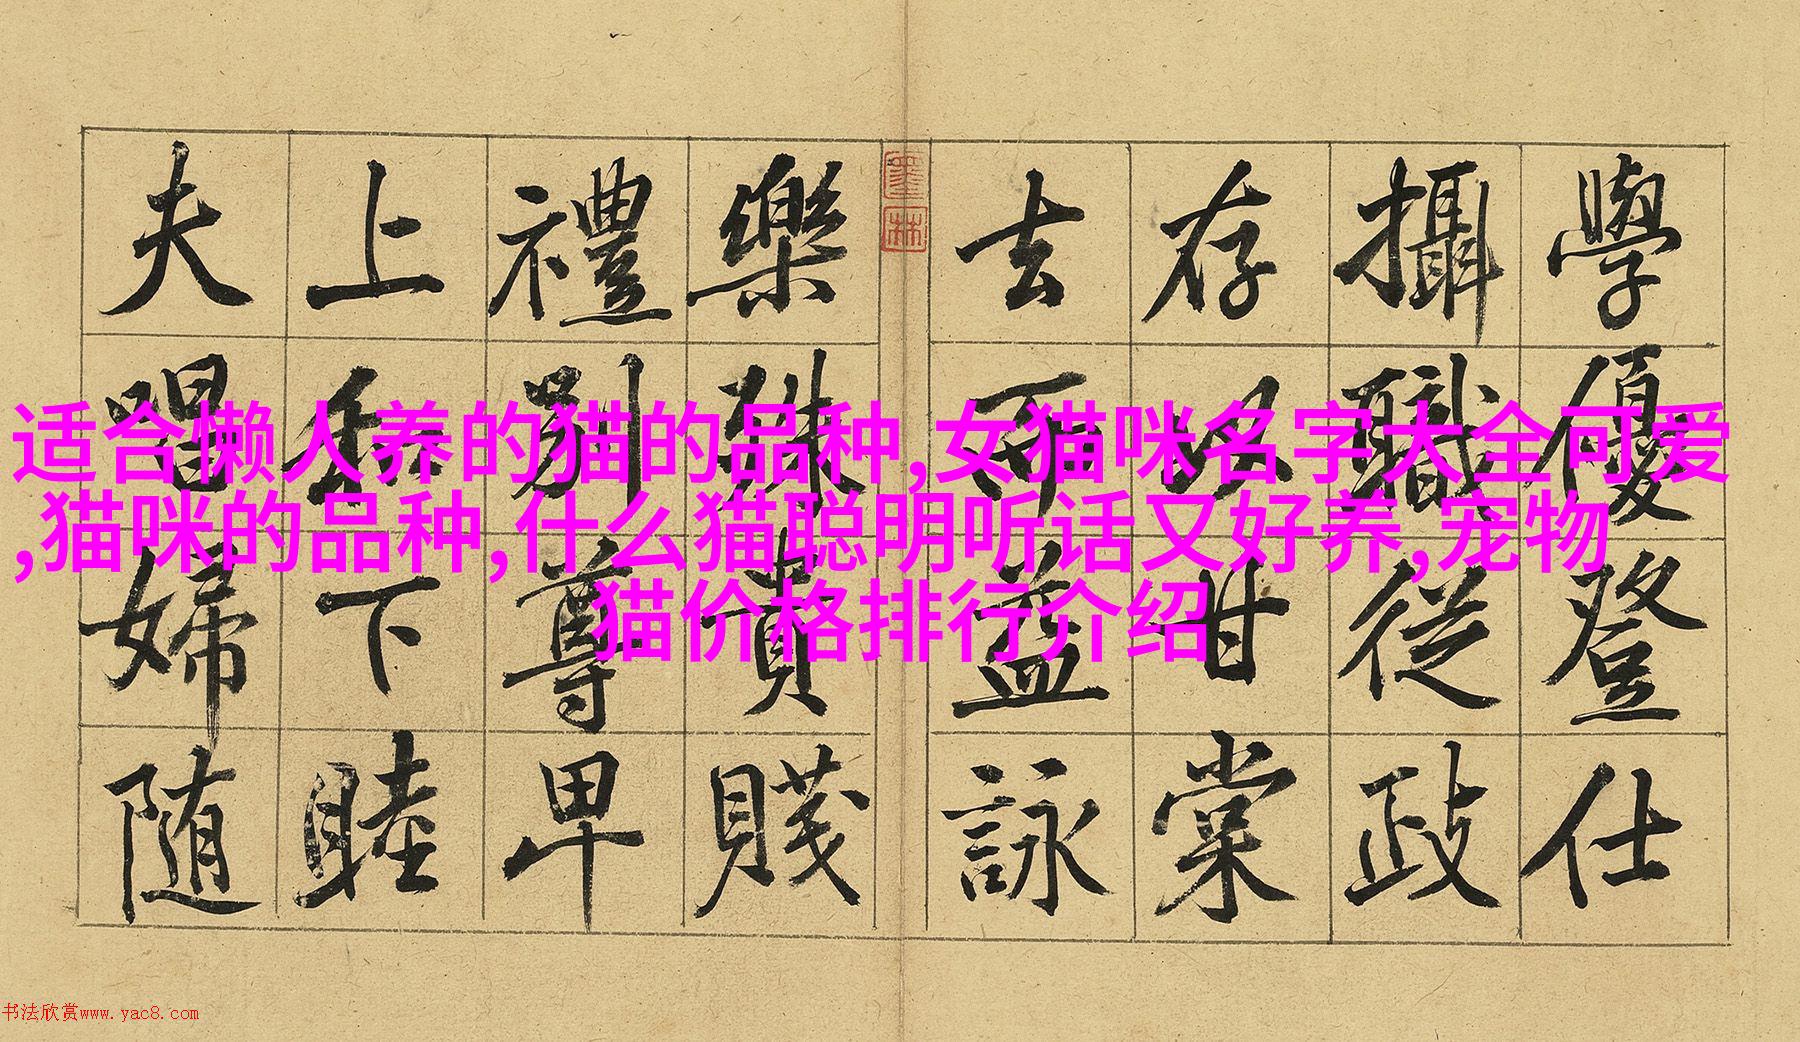 學優登仕
攝職從政
存以甘棠
去而益詠
墨林
樂殊貴賤
禮別尊卑
上和下睦
夫唱婦随
适合懒人养的猫的品种,女猫咪名字大全可爱
,猫咪的品种,什么猫聪明听话又好养,宠物
猫价格排行介绍
书法欣赏www.yac8.com